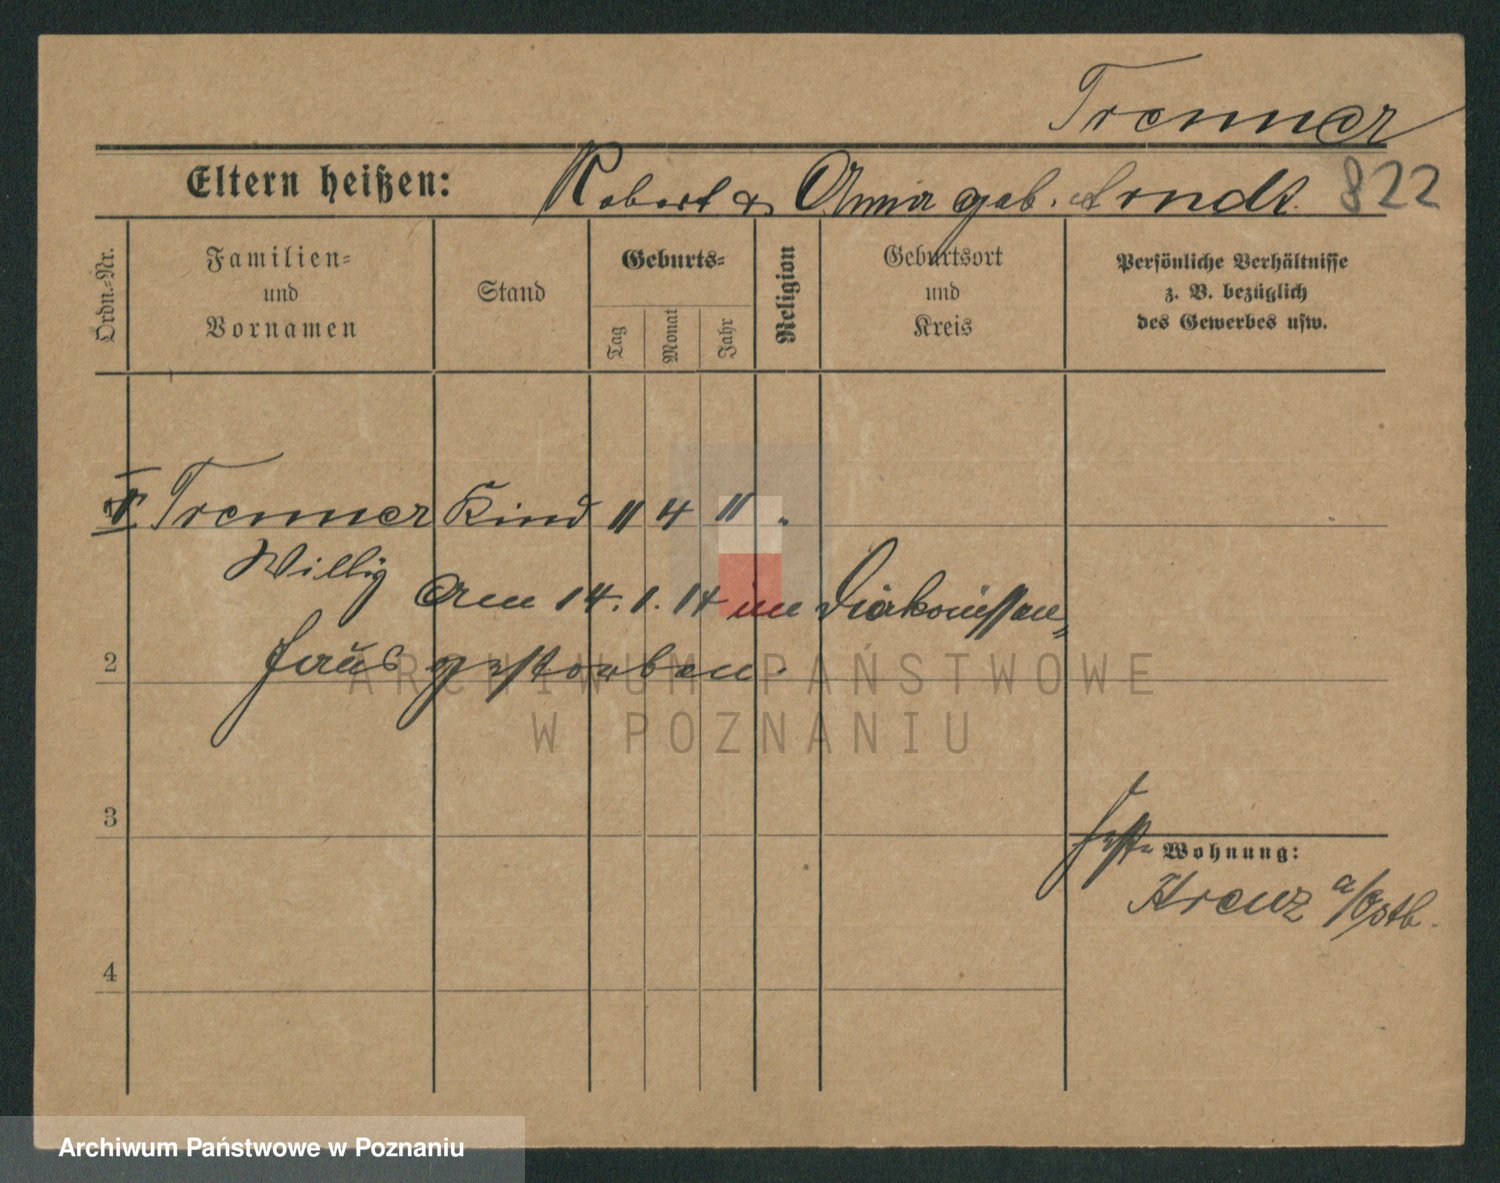 Trenner
Eltern heißen: Robert & Anna geb. Arndt. 822
Ordn.-Nr.
Familien-
und
Vornamen
Stand
Geburts-
Tag
Monat
Jahr
Religion
Geburtsort
und
Kreis
Persönliche Verhältnisse
z. B. bezüglich
des Gewerbes usw.
1 Trenner Kind 11 4 11 "
Willy
Am 14. 1. 14 im Diakonissen-
haus gestorben.
2
ARCHIWUM PAŃSTWOWE
W POZNANIU
3
Wohnung:
Kreuz a/Ostb.
4
Archiwum Państwowe w Poznaniu